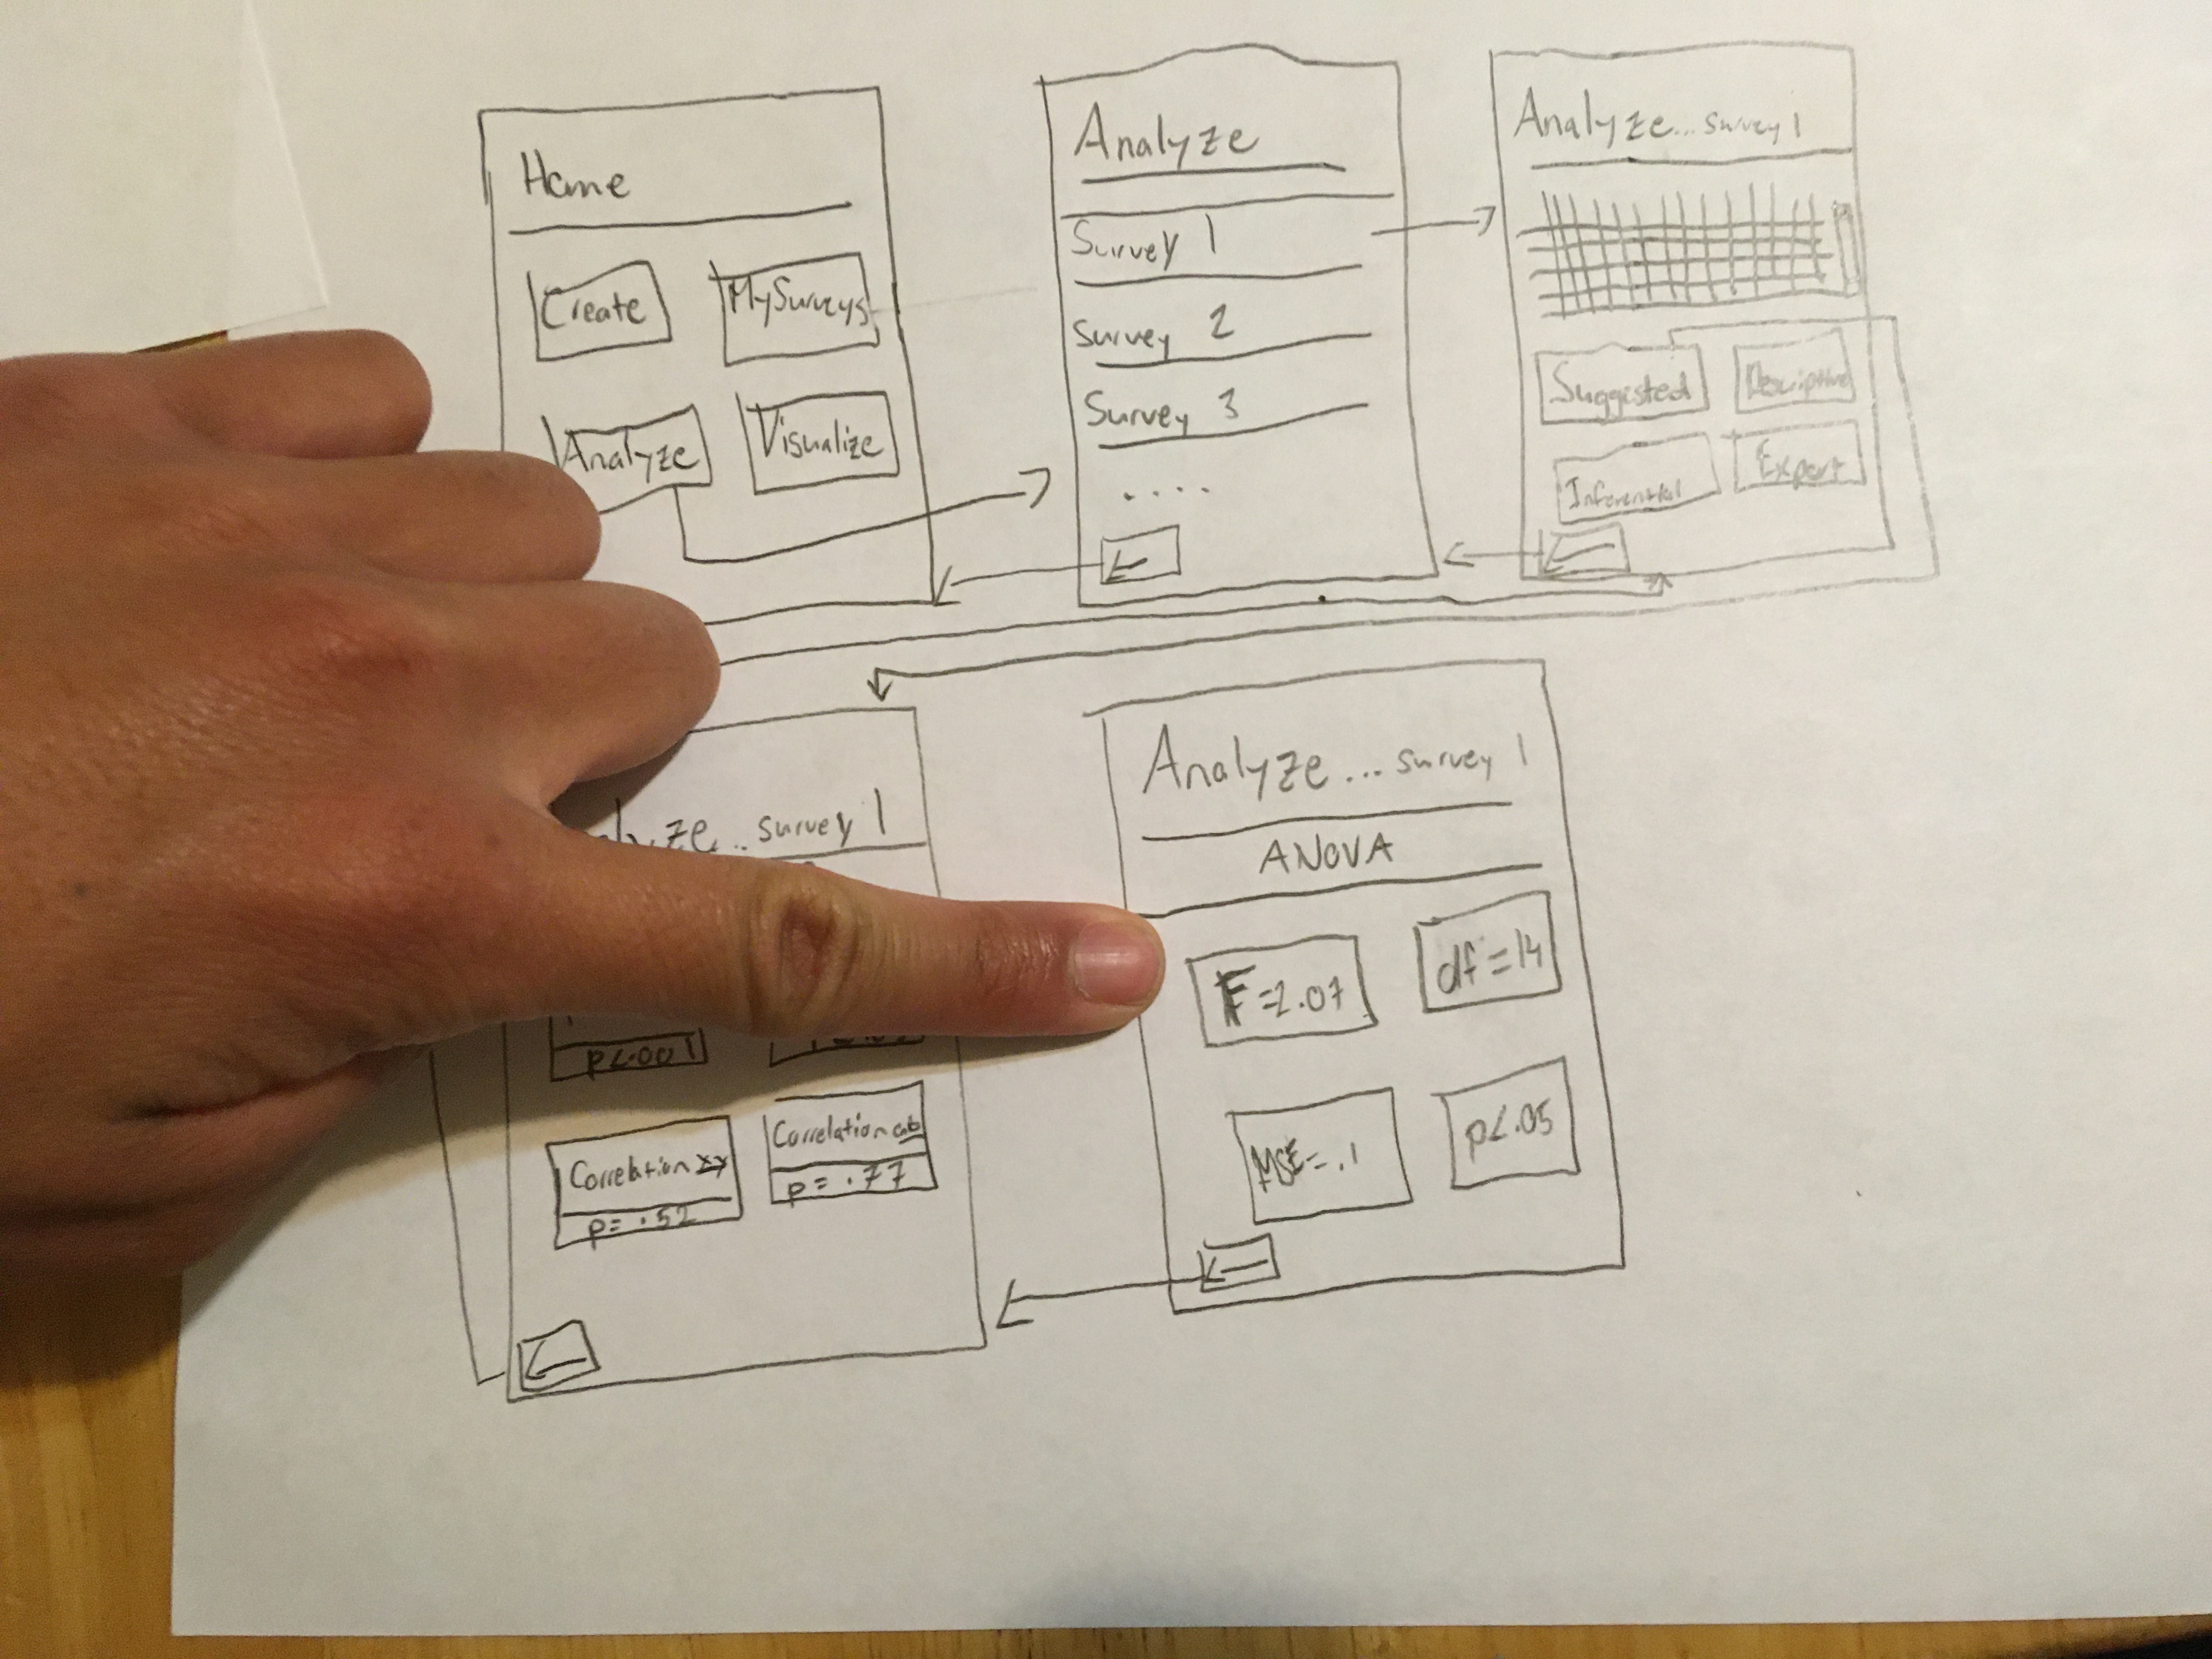 Home
Create
MySurveys
Analyze
Visualize
Analyze
Survey 1
Survey 2
Survey 3
....
Analyze... survey 1
Suggested
Descriptive
Inferential
Export
survey 1
p<.001
Correlation xy
p=.52
Correlation ab
p=.77
Analyze... survey 1
ANOVA
df=14
MSE=.1
p<.05